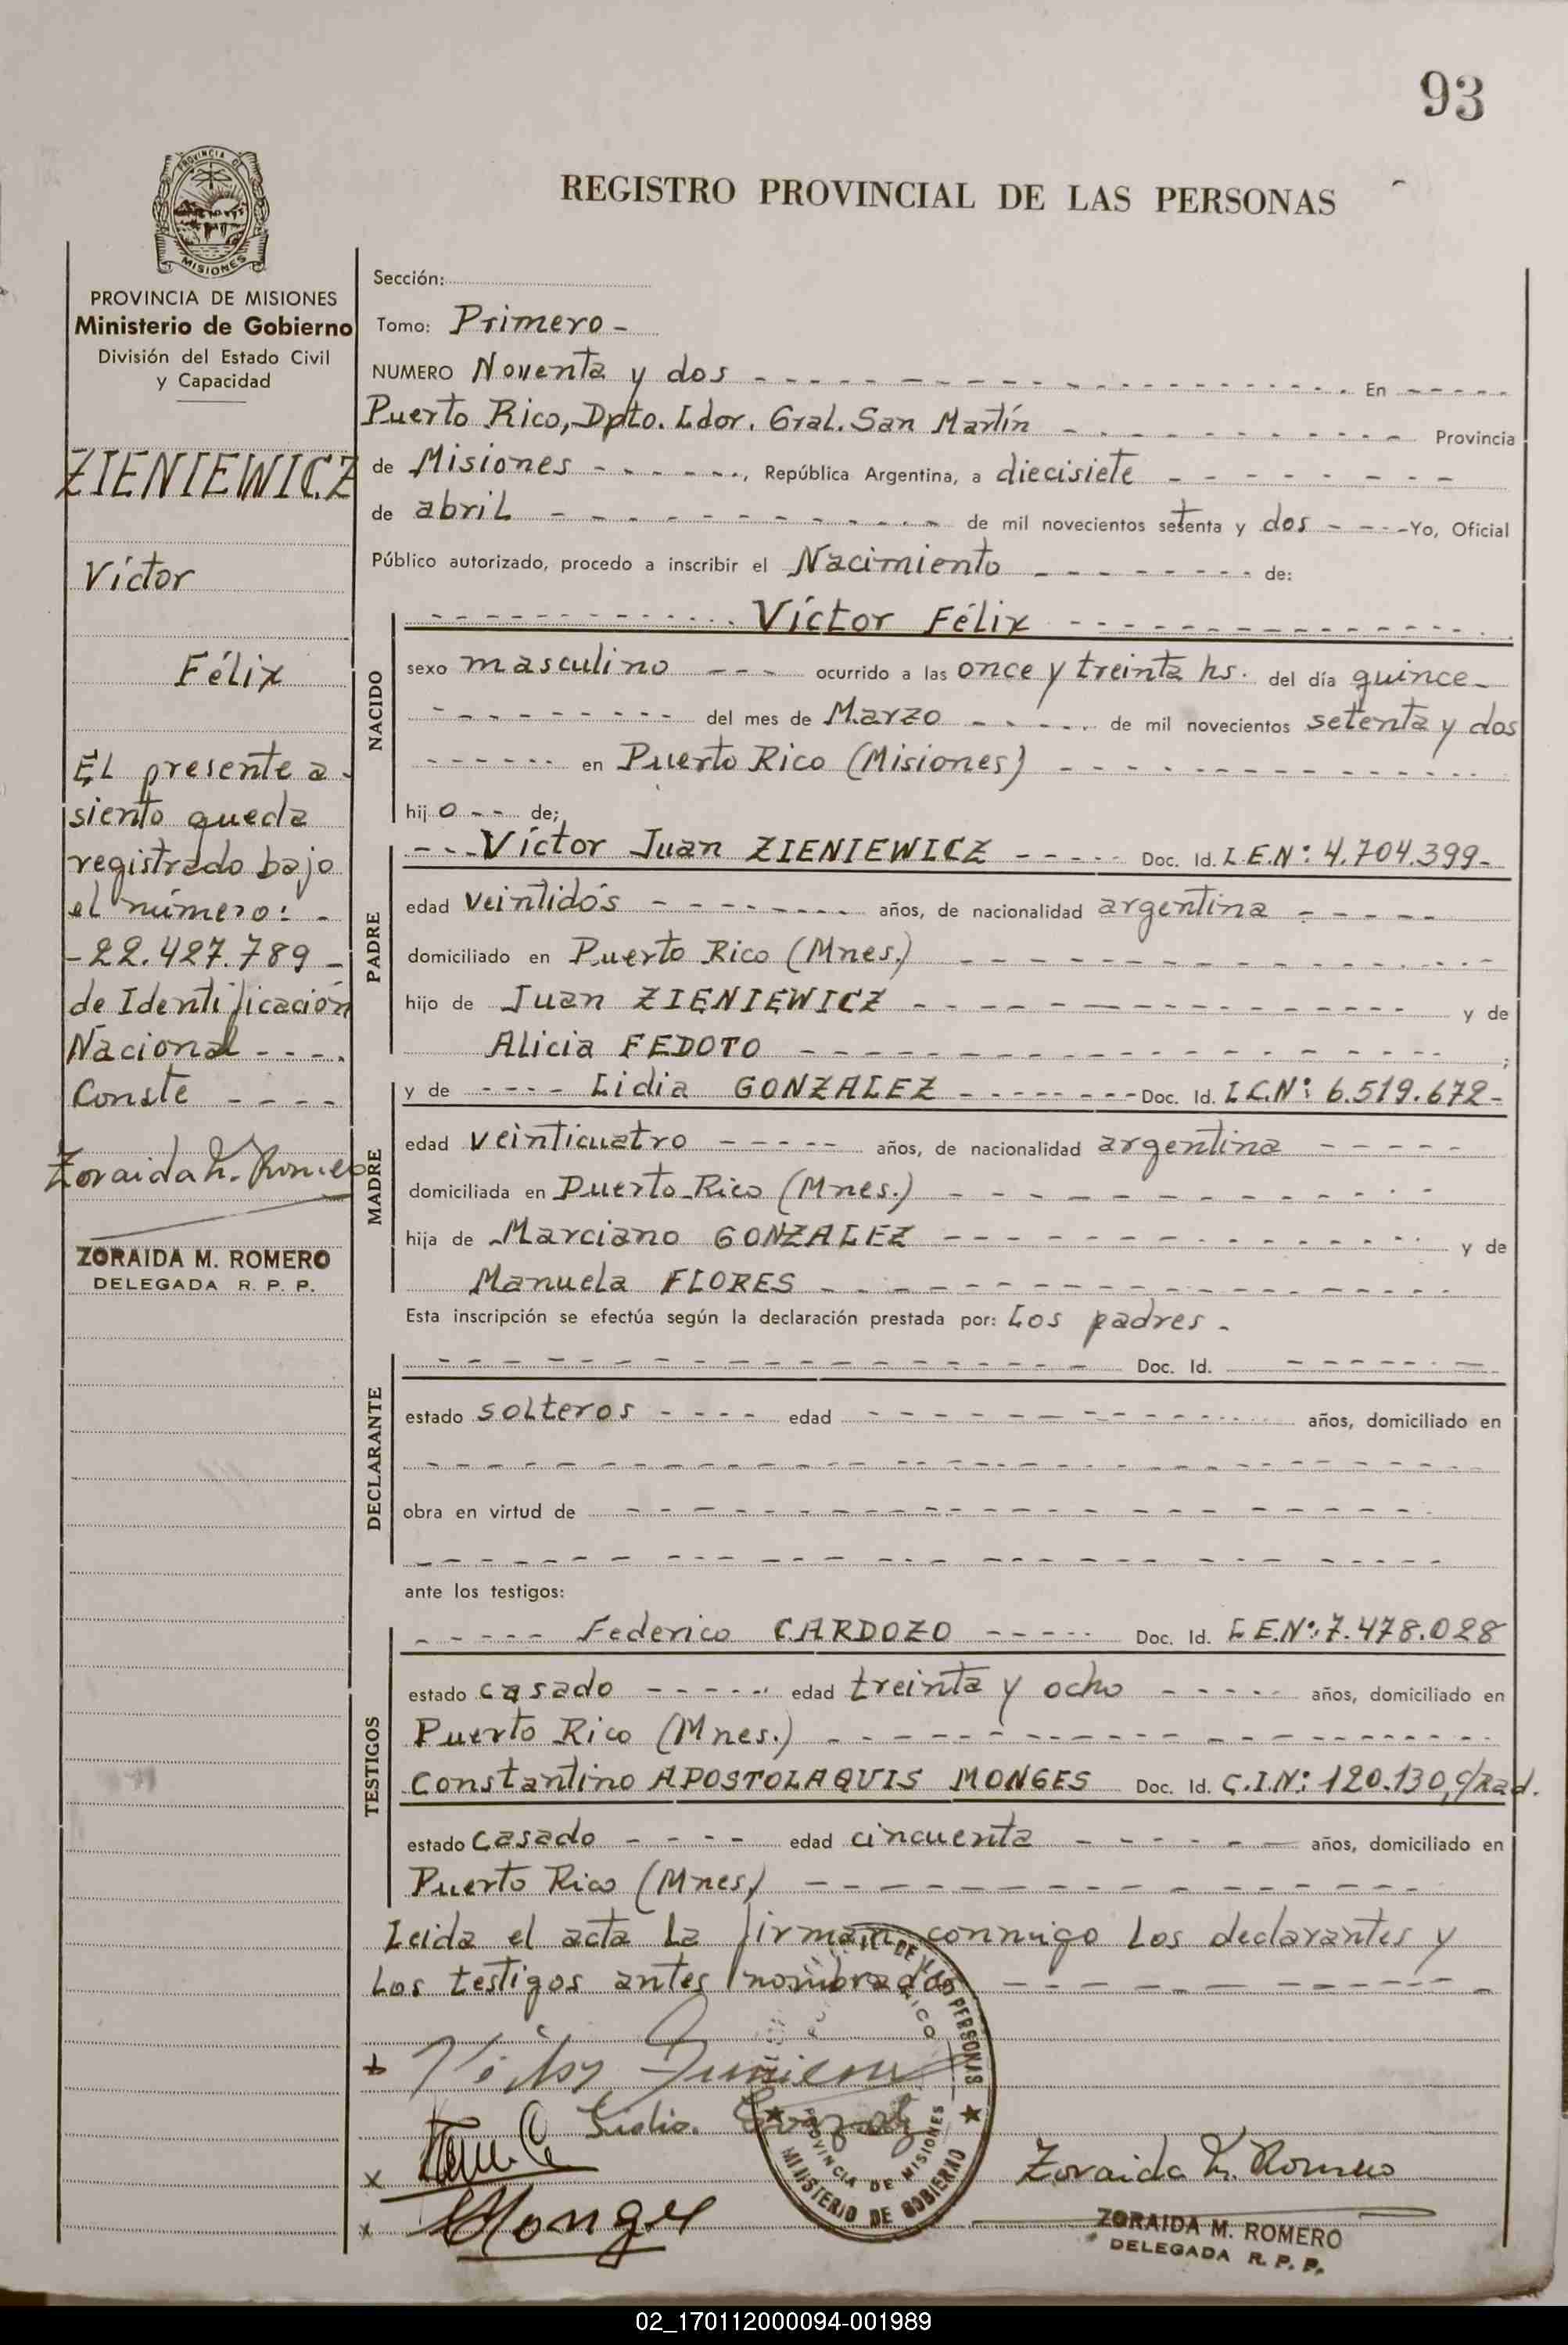 93
REGISTRO PROVINCIAL DE LAS PERSONAS
PROVINCIA DE
MISIONES
PROVINCIA DE MISIONES
Ministerio de Gobierno
División del Estado Civil
y Capacidad
ZIENIEWICZ
Víctor
Félix
El presente a-
siento queda
registrado bajo
el número: -
-22.427.789-
de Identificación
Nacional - - - .
Conste - - - -
Zoraida M. Romero
ZORAIDA M. ROMERO
DELEGADA R. P. P.
Sección:
Tomo: Primero -
NUMERO Noventa y dos - - - En - - -
Puerto Rico, Dpto. Ldor. Gral. San Martín - - - Provincia
de Misiones - - -, República Argentina, a diecisiete - - -
de abril - - - de mil novecientos setenta y dos - - - Yo, Oficial
Público autorizado, procedo a inscribir el Nacimiento - - - de:
NACIDO
- - - Víctor Félix - - -
sexo masculino - - - ocurrido a las once y treinta hs. del día quince -
- - - del mes de Marzo - - - de mil novecientos setenta y dos
- - - en Puerto Rico (Misiones) - - -
hijo - - de;
PADRE
- - - Víctor Juan ZIENIEWICZ - - - Doc. Id. L.E.N°: 4.704.399-
edad veintidós - - - años, de nacionalidad argentina - - -
domiciliado en Puerto Rico (Mnes.) - - -
hijo de Juan ZIENIEWICZ - - - y de
Alicia FEDOTO - - - ;
MADRE
y de - - - Lidia GONZALEZ - - - Doc. Id. L.C.N°: 6.519.672-
edad veinticuatro - - - años, de nacionalidad argentina - - -
domiciliada en Puerto Rico (Mnes.) - - -
hija de Marciano GONZALEZ - - - y de
Manuela FLORES - - -
Esta inscripción se efectúa según la declaración prestada por: Los padres -
DECLARANTE
- - - Doc. Id. - - -
estado solteros - - - edad - - - años, domiciliado en
- - -
obra en virtud de - - -
- - -
ante los testigos:
TESTIGOS
- - - Federico CARDOZO - - - Doc. Id. L.E.N°: 7.478.028
estado casado - - - edad treinta y ocho - - - años, domiciliado en
Puerto Rico (Mnes.) - - -
Constantino APOSTOLAQUIS MONGES Doc. Id. C.I.N°: 120.130, c/Rad.
estado casado - - - edad cincuenta - - - años, domiciliado en
Puerto Rico (Mnes) - - -
Leida el acta la firman conmigo los declarantes y
los testigos antes nombrados - - -
DE LAS PERSONAS
PROVINCIA DE MISIONES
MINISTERIO DE GOBIERNO
Lidia Gonzalez
x
x Monges
Zoraida M. Romero
ZORAIDA M. ROMERO
DELEGADA R. P. P.
02_170112000094-001989